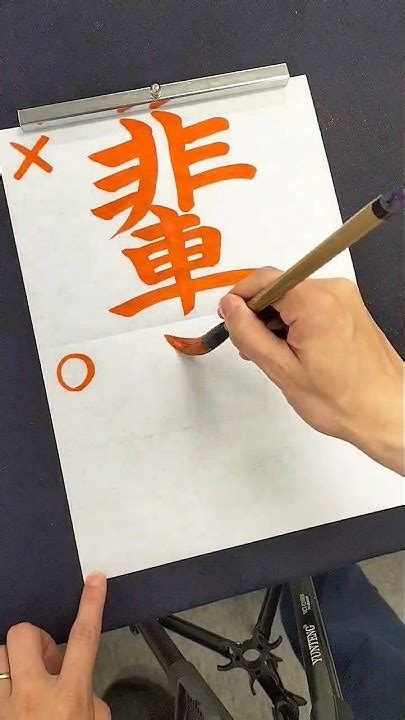 ×
輩
○
YUNTENG